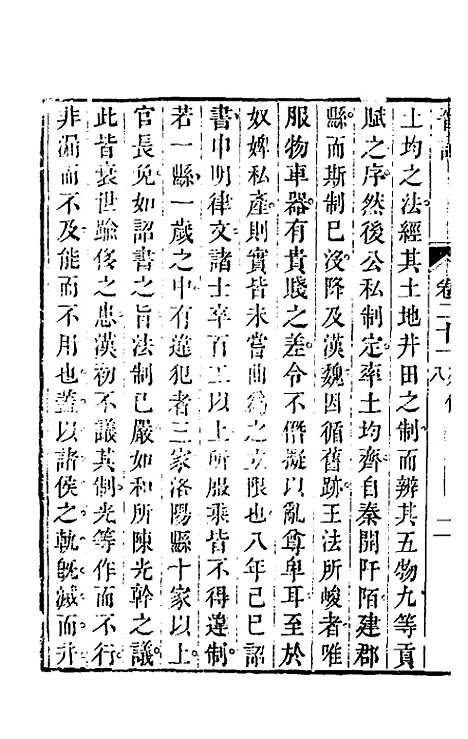 土均之法經其土地井田之制而辨其五物九等貢
賦之序然後公私制定率土均齊自秦開阡陌建郡
縣而斯制已沒降及漢魏因循舊跡王法所峻者唯
服物車器有貴賤之差令不僭擬以亂尊卑耳至於
奴婢私產則實皆未嘗曲為之立限也八年己巳詔
書申明律文諸士卒百工以上所服乘皆不得違制
若一縣一歲之中有違犯者三家洛陽縣十家以上
官長免如詔書之旨法制已嚴如和所陳光幹之議
此皆衰世踰侈之患漢初不議其制光等作而不行
非漏而不及能而不用也蓋以諸侯之軌既滅而井